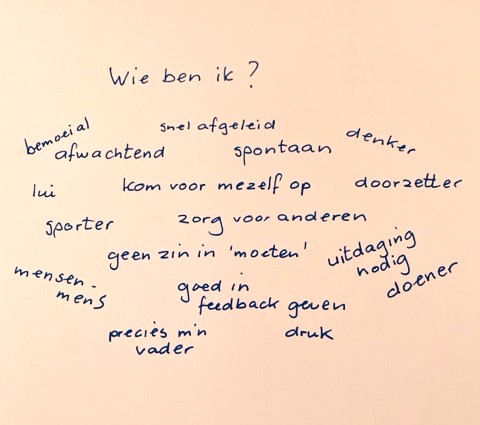 Wie ben ik?
bemoeial
snel afgeleid
denker
afwachtend
spontaan
lui
kom voor mezelf op
doorzetter
sporter
zorg voor anderen
geen zin in 'moeten'
uitdaging
nodig
mensen-
mens
goed in
feedback geven
doener
precies m'n
vader
druk